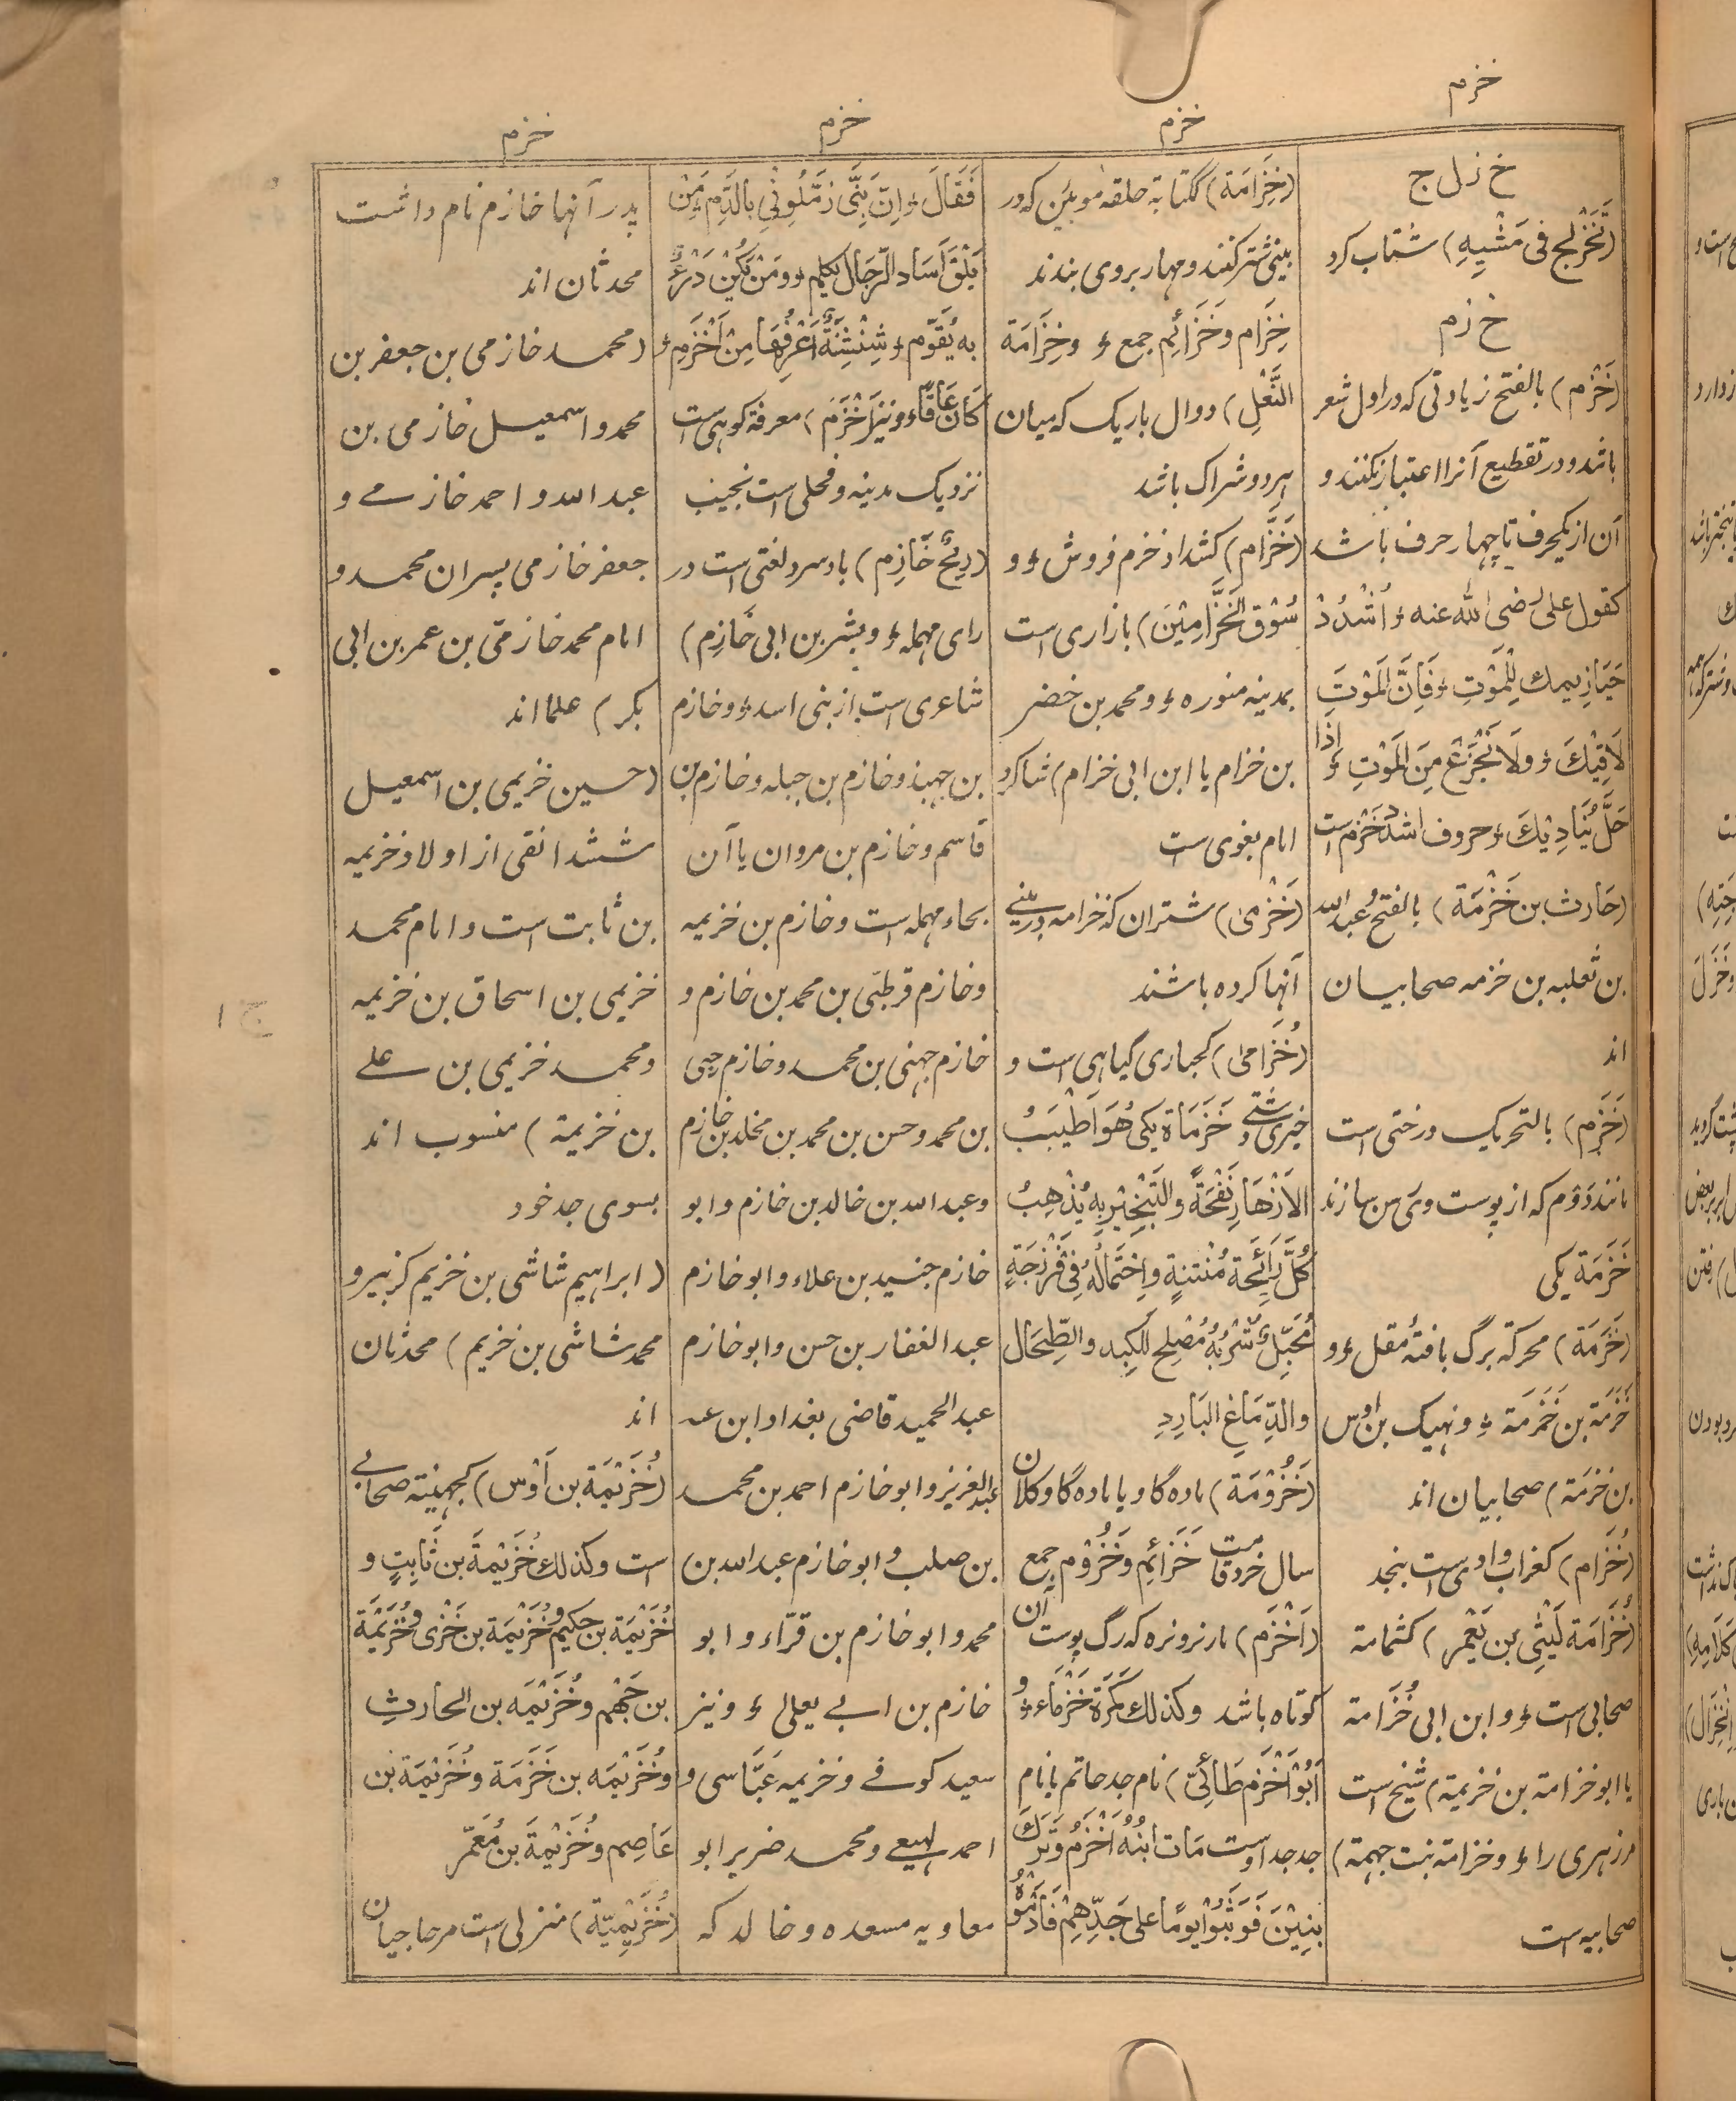 خزم
خزم
خزم
خزم
خ ز ل ج
(تَخَزْلَجَ فی مَشْیِهِ) شتاب کرد
خ ز م
(خَزْم) بالفتح زیادتی که در اول شعر
باشد و در تقطیع آنرا اعتبار نکنند و
آن از یکحرف تا چهار حرف باشد
کقول علی رضی الله عنه ؤ اُشْدُدْ
حَیَازِیمك لِلْمَوْتِ ؤ فَاِنَّ الْمَوْتَ
لَاقِیْكَ ؤ وَلَا تَجْزَعْ مِنَ الْمَوْتِ ؤ اِذَا
حَلَّ بِنَادِیْكَ ؤ حروف اشدد خزم است
(حَارث بن خَزْمَة) بالفتح و عبد الله
بن ثعلبه بن خزمه صحابیان
اند
(خَزَم) بالتحریک درختی است
مانند دَوْم که از پوست وی رسن سازند
خَزَمَة یکی
(خَزَمَة) محرکة برگ بافتهٔ مقل ؤ و
خَزَمَة بن خَزَمَة ؤ و نهیک بن اوس
بن خَزَمَة) صحابیان اند
(خُزَام) کغراب وادی است بنجد
(خُزَامَة لَیْثِی بن یَعْمَر) کثمامة
صحابی است ؤ و ابن ابی خُزَامَة
یا ابو خزامة بن خزیمة) شیخ است
مر زهری را ؤ و خزامة بنت جهمة)
صحابیه است
(خِزَامَة) ککتابة حلقه موئین که در
بینی شتر کنند و مهار بروی بندند
خِزَام وخَزَائِم جمع ؤ وخِزَامَة
النَّعْلِ) دوال باریک که میان
هر دو شراک باشد
(خَزَّام) کشداد خزم فروش ؤ و
سُوْق الْخَزَّامِیْنَ) بازاری است
بمدینه منوره ؤ و محمد بن خضر
بن خزام یا ابن ابی خزام) شاکرد
امام بغوی است
(خَزْمیٰ) شتران که خزامه در بینی
آنها کرده باشند
(خُزَامیٰ) کحباری گیاهی است و
خیری دشتی و خَزَمَاة یکی هُوَ اَطْیَبُ
الاَزْهَارِ نَفْحَةً والتَّبْخِیْرُ بِهِ یُذْهِبُ
کُلَّ رَائِحَة مُنْتِنَةٍ وَاِحْتِمَالُهُ فی فَرْزَجَةٍ
مُحَبِّلٌ ؤ شُرْبُهُ مُصْلِح لِلْکَبِد والطِّحَال
والدِّمَاغِ البَارِدِ
(خَزُوْمَة) ماده گاو یا ماده گاو کلان
سال خرد قامت خَزَائِم وخَزُوْم جمع
(اَخْزَم) مار نر و نره که رگ پوست آن
کوتاه باشد وکذلك کَمَرَة خَزْمَاء ؤ و
اَبُوْ اَخْزَم طَائِیّ) نام جد حاتم یا نام
جد جد اوست مَات ابْنُهُ اَخْزَمُ وَتَرَكَ
بَنِیْنَ فَوَثَبُوْا یومًا علی جَدِّهِمْ فَاَدْمَوْهُ
فَقَالَ ؤ اِنَّ بَنِیَّ زَمَّلُوْنِی بِالدَّم ؤ مَنْ
یَلْقَ آسَاد الرِّجَال یُکْلَم ؤ وَمَنْ یَکُنْ دَرْءٌ
بِه یُقَوَّم ؤ شِنْشِنَةٌ اَعْرِفُهَا مِنْ اَخْزَم ؤ
کَانَ عَاقًّا ؤ و نیز اَخْزَم) معرفة کوهی است
نزدیک مدینه و فحلی است نجیب
(رِیْحٌ خَازِم) باد سرد لغتی است در
رای مهمله ؤ و بشر بن ابی خَازِم)
شاعری است از بنی اسد ؤ و خازم
بن جهبذ و خازم بن جبله و خازم بن
قاسم و خازم بن مروان یا آن
بحاء مهمله است و خازم بن خزیمه
و خازم قرطبی بن محمد بن خازم و
خازم جهنی بن محمد و خازم رحبی
بن محمد و حسن بن محمد بن مخلد بن خازم
و عبد الله بن خالد بن خازم و ابو
خازم جنید بن علاء و ابو خازم
عبد الغفار بن حسن و ابو خازم
عبد الحمید قاضی بغداد ابن عبد
العزیز و ابو خازم احمد بن محمد
بن صلب و ابو خازم عبد الله بن
محمد و ابو خازم بن فرّاء و ابو
خازم بن ابی یعلی ؤ و نیز
سعید کوفی و خزیمه عَبَّاسی و
احمد لهیعی و محمد ضریر ابو
معاویه مسعده و خالد که
پدر آنها خازم نام داشت
محدثان اند
(محمد خازمی بن جعفر بن
محمد و اسمعیل خازمی بن
عبد الله و احمد خازمی و
جعفر خازمی پسران محمد و
امام محمد خازمی بن عمر بن ابی
بکر) علما اند
(حسین خزیمی بن اسمعیل
شنشدانقی از اولاد خزیمه
بن ثابت است و امام محمد
خزیمی بن اسحاق بن خزیمه
و محمد خزیمی بن علی
بن خزیمة) منسوب اند
بسوی جد خود
(ابراهیم شاشی بن خزیم کزبیر و
محمد شاشی بن خزیم) محدثان
اند
(خُزَیْمَة بن اَوْس) کجهینة صحابی
است وکذلك خُزَیْمَة بن ثَابِتٍ و
خُزَیْمَة بن حکیم و خُزَیْمَة بن خَزْی و خُزَیْمَة
بن جَهْم و خُزَیْمَه بن الحارثِ
و خُزَیْمَه بن خَزَمَة و خُزَیْمَة بن
عَاصِم و خُزَیْمَة بن مُعَمّر
(خُزَیْمِیَّة) منزلی است مر حاجیان